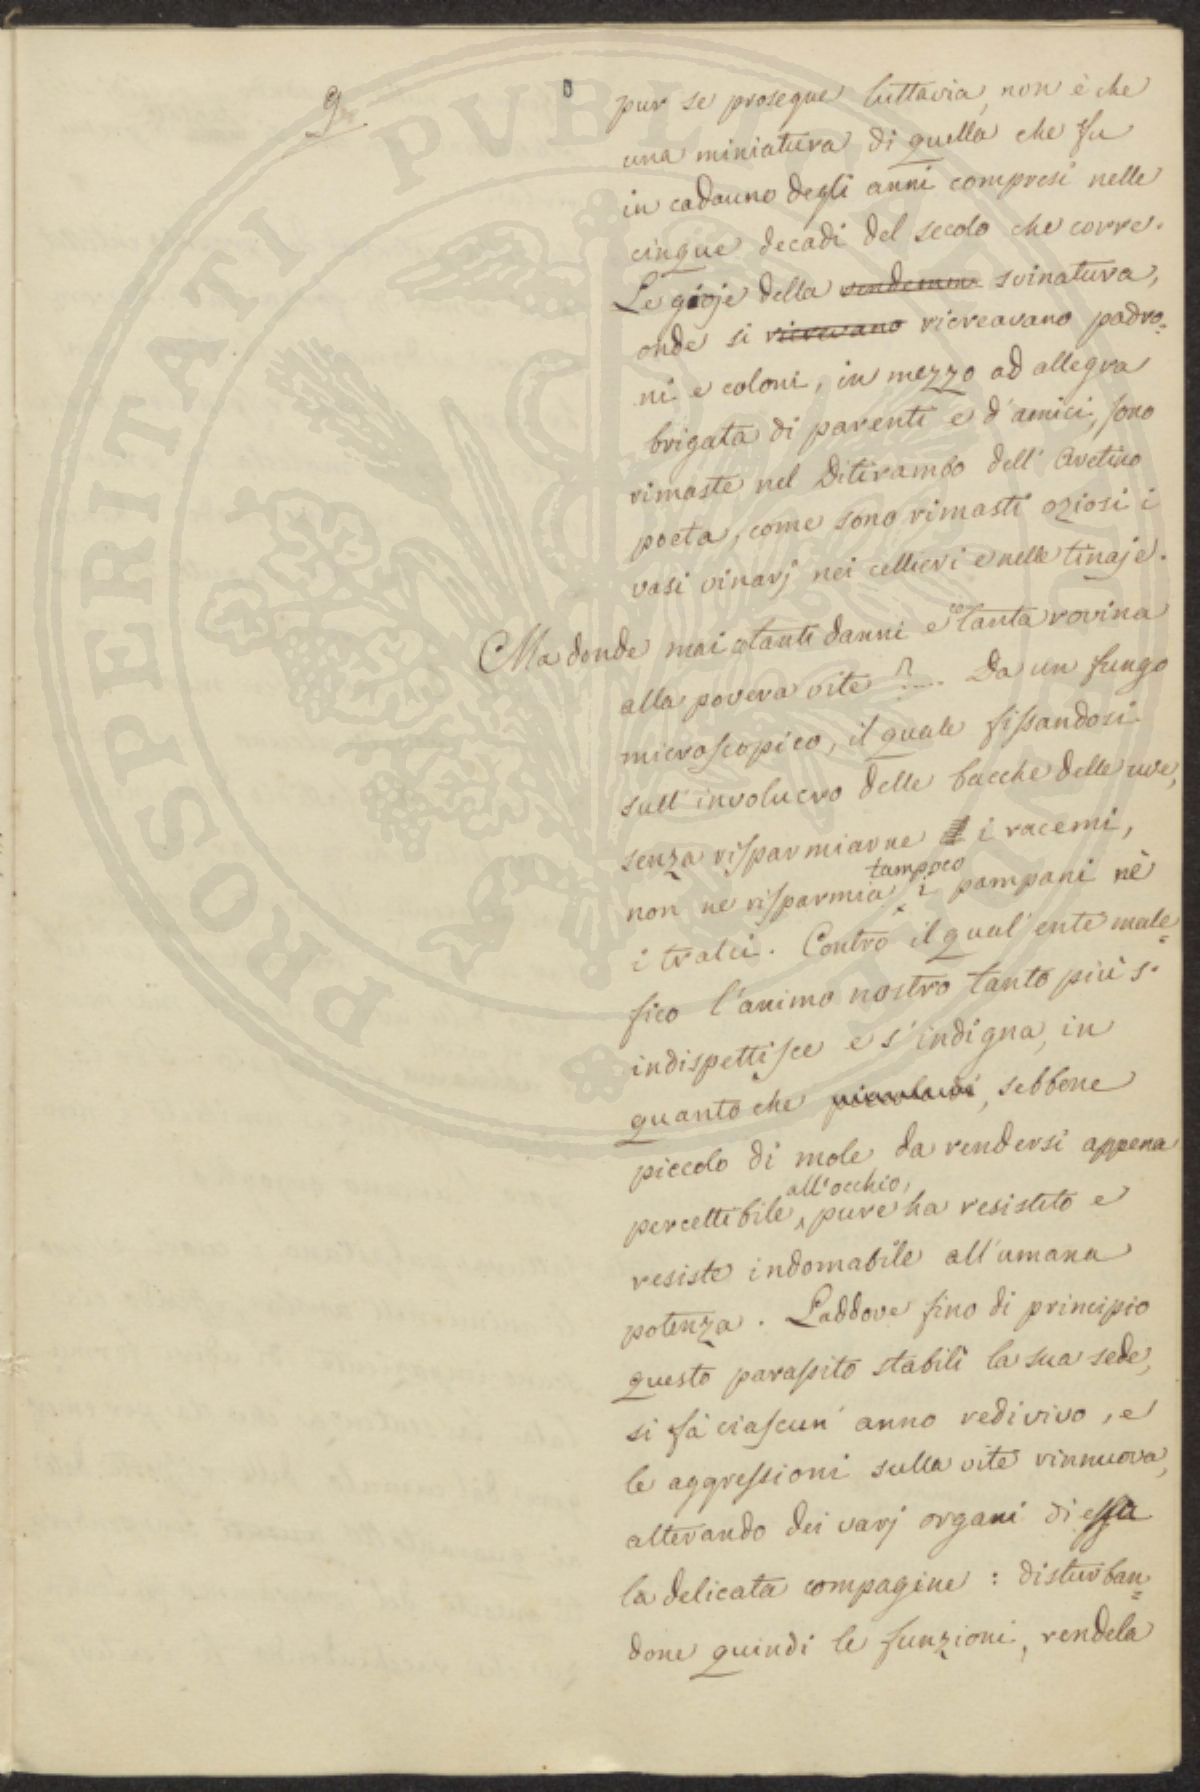 pur se prosegue tuttavia, non è che
una miniatura di quella che fu
in cadauno degli anni compresi nelle
cinque decadi del secolo che corre.
Le gioje della svinatura,
onde si ricreavano padro=
ni e coloni, in mezzo ad allegra
brigata di parenti e d'amici, sono
rimaste nel Ditirambo dell'Aretino
poeta, come sono rimasti oziosi i
vasi vinarj nei cellieri e nelle tinaje.
Ma donde mai tanti danni e tanta rovina
alla povera vite?.... Da un fungo
microscopico, il quale fissandosi
sull'involucro delle bacche delle uve,
senza risparmiarne i racemi,
non ne risparmia tampoco i pampani nè
i tralci. Contro il qual'ente male=
fico l'animo nostro tanto più s'
indispettisce e s'indigna, in
quanto che, sebbene
piccolo di mole da rendersi appena
percettibile all'occhio, pure ha resistito e
resiste indomabile all'umana
potenza. Laddove fino di principio
questo parassito stabilì la sua sede,
si fà ciascun'anno redivivo, e
le aggressioni sulla vite rinnuova,
alterando dei varj organi di essa
la delicata compagine: disturban=
done quindi le funzioni, rendela
PROSPERITATI PUBLICAE